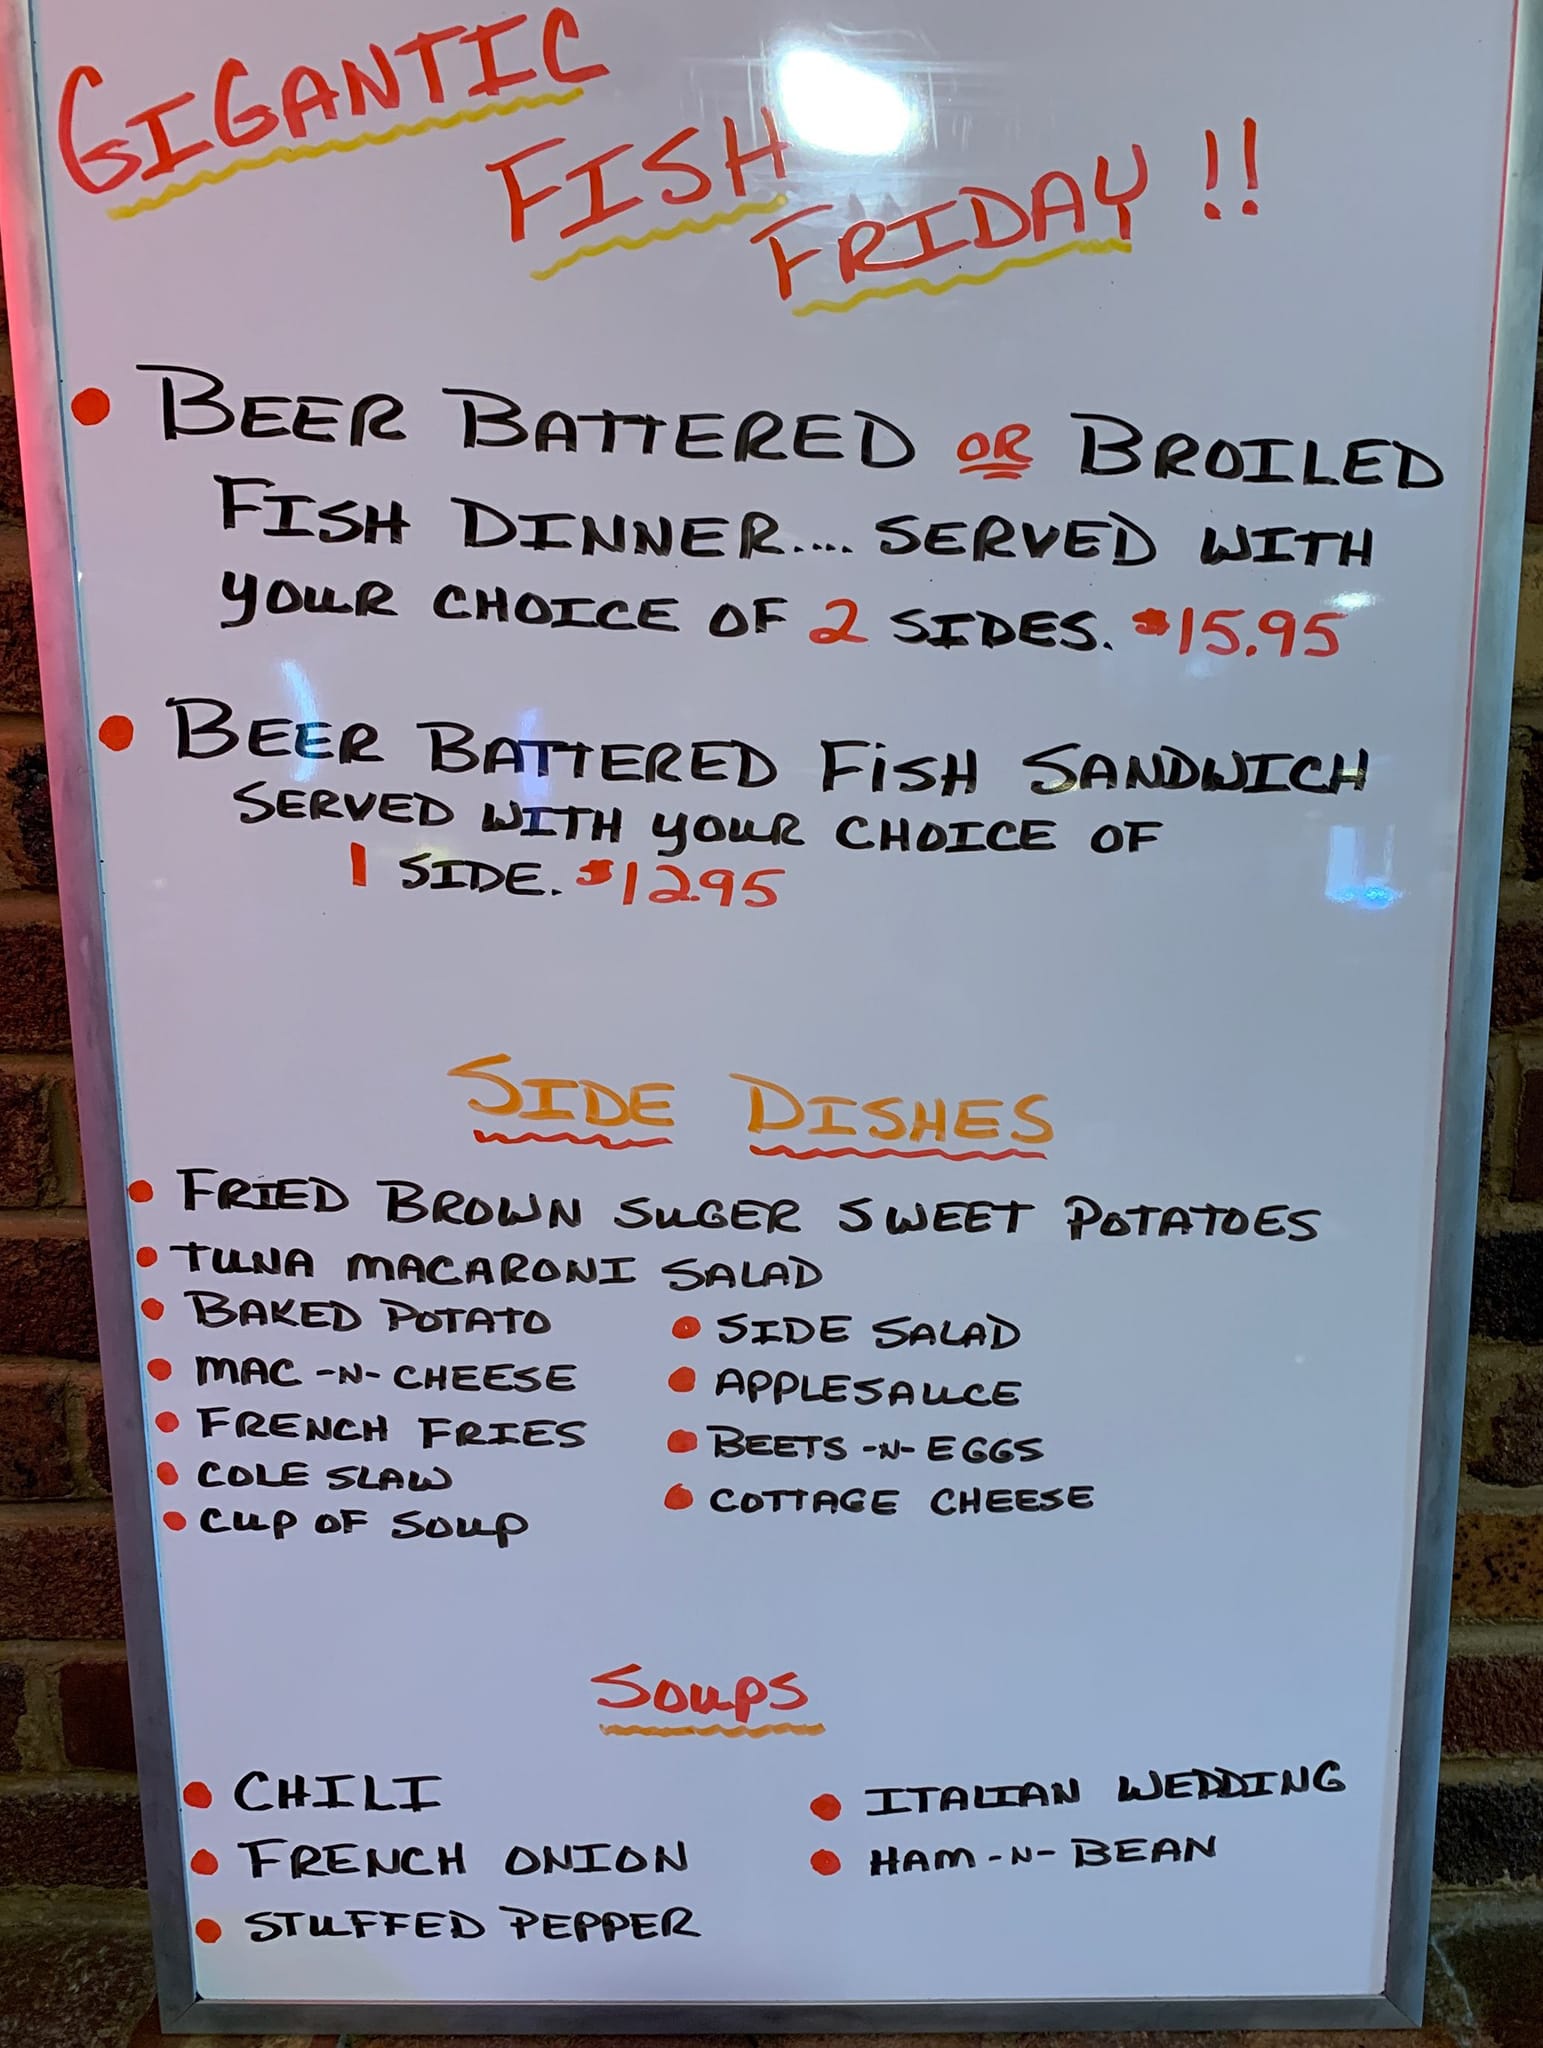 GIGANTIC
FISH
FRIDAY !!
• BEER BATTERED OR BROILED
FISH DINNER.... SERVED WITH
YOUR CHOICE OF 2 SIDES. $15.95
• BEER BATTERED FISH SANDWICH
SERVED WITH YOUR CHOICE OF
1 SIDE. $12.95
SIDE DISHES
• FRIED BROWN SUGER SWEET POTATOES
• TUNA MACARONI SALAD
• BAKED POTATO
• MAC-N-CHEESE
• FRENCH FRIES
• COLE SLAW
• CUP OF SOUP
• SIDE SALAD
• APPLESAUCE
• BEETS-N-EGGS
• COTTAGE CHEESE
SOUPS
• CHILI
• FRENCH ONION
• STUFFED PEPPER
• ITALIAN WEDDING
• HAM-N-BEAN